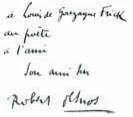 à Louis de Gonzague Frick
au poète
à l'ami
Son ami
Robert Desnos